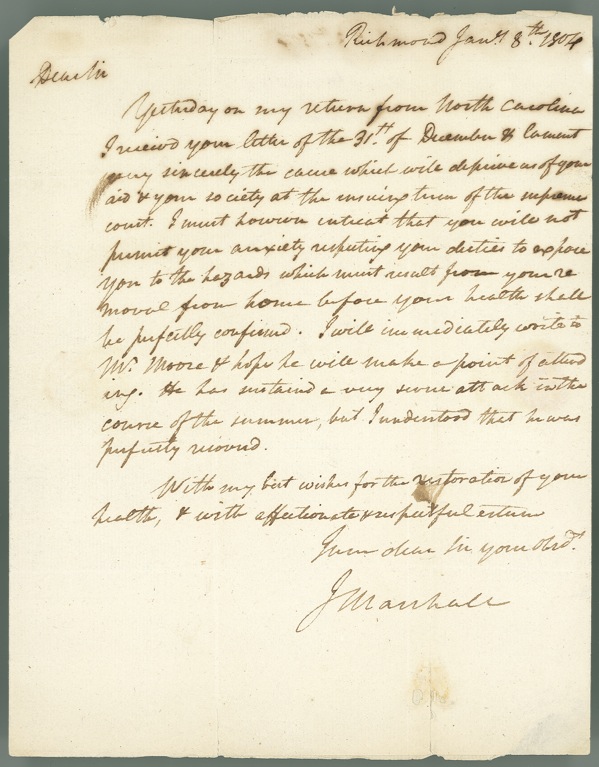 Richmond Jany 8th. 1804
Dear Sir
Yesterday on my return from North Carolina
I receivd your letter of the 31st. of December & lament
very sincerely the cause which will deprive us of your
aid & your society at the ensuing term of the supreme
court. I must however intreat that you will not
permit your anxiety respecting your duties to expose
you to the hazards which must result from your re
moval from home before your health shall
be perfectly confirmd. I will immediately write to
Mr. Moore & hope he will make a point of attend
ing. He has sustaind a very severe attack in the
course of the summer, but I understood that he was
perfectly recoverd.
With my best wishes for the restoration of your
health, & with affectionate & respectful esteem
I am dear Sir your Obedt.
J Marshall